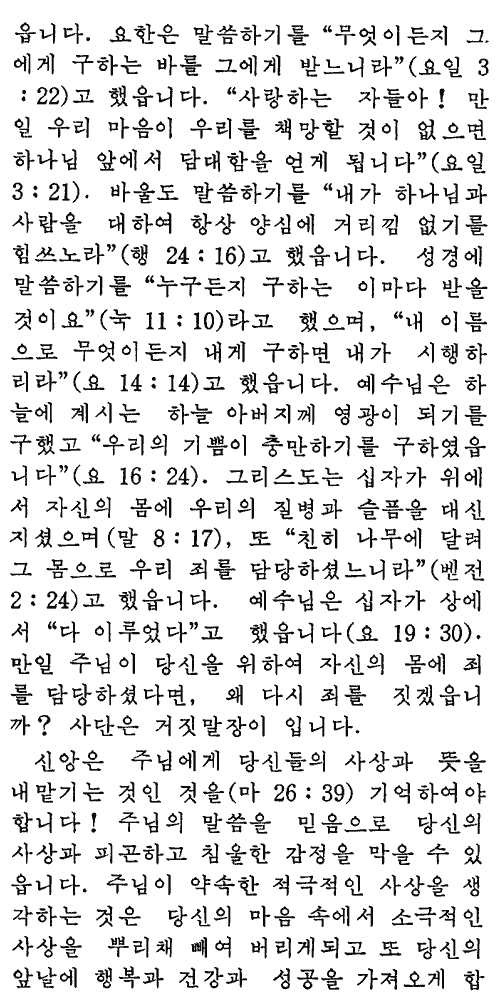 읍니다. 요한은 말씀하기를 “무엇이든지 그
에게 구하는 바를 그에게 받느니라”(요일 3
: 22)고 했읍니다. “사랑하는 자들아! 만
일 우리 마음이 우리를 책망할 것이 없으면
하나님 앞에서 담대함을 얻게 됩니다”(요일
3 : 21). 바울도 말씀하기를 “내가 하나님과
사람을 대하여 항상 양심에 거리낌 없기를
힘쓰노라”(행 24 : 16)고 했읍니다. 성경에
말씀하기를 “누구든지 구하는 이마다 받을
것이요”(눅 11 : 10)라고 했으며, “내 이름
으로 무엇이든지 내게 구하면 내가 시행하
리라”(요 14 : 14)고 했읍니다. 예수님은 하
늘에 계시는 하늘 아버지께 영광이 되기를
구했고 “우리의 기쁨이 충만하기를 구하였읍
니다”(요 16 : 24). 그리스도는 십자가 위에
서 자신의 몸에 우리의 질병과 슬픔을 대신
지셨으며(말 8 : 17), 또 “친히 나무에 달려
그 몸으로 우리 죄를 담당하셨느니라”(벧전
2 : 24)고 했읍니다. 예수님은 십자가 상에
서 “다 이루었다”고 했읍니다(요 19 : 30).
만일 주님이 당신을 위하여 자신의 몸에 죄
를 담당하셨다면, 왜 다시 죄를 짓겠읍니
까? 사단은 거짓말장이 입니다.
신앙은 주님에게 당신들의 사상과 뜻을
내맡기는 것인 것을(마 26 : 39) 기억하여야
합니다! 주님의 말씀을 믿음으로 당신의
사상과 피곤하고 침울한 감정을 막을 수 있
읍니다. 주님이 약속한 적극적인 사상을 생
각하는 것은 당신의 마음 속에서 소극적인
사상을 뿌리채 빼여 버리게되고 또 당신의
앞날에 행복과 건강과 성공을 가져오게 합